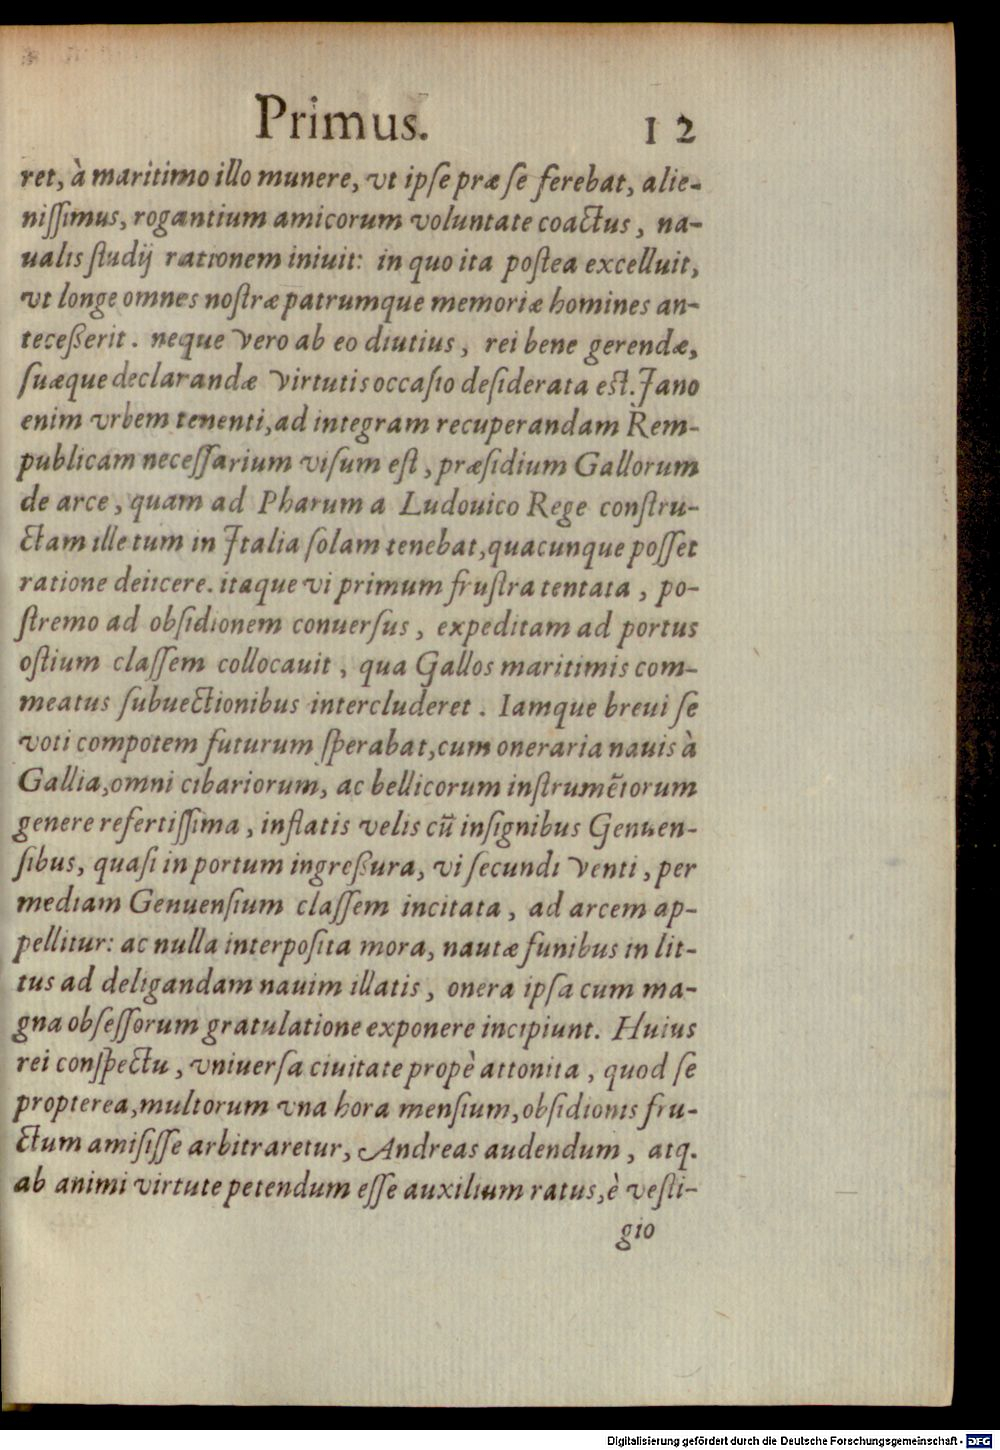 Primus. 12
ret, à maritimo illo munere, vt ipſe præ ſe ferebat, alie-
niſſimus, rogantium amicorum voluntate coactus, na-
ualis ſtudij rationem iniuit: in quo ita poſtea excelluit,
vt longe omnes noſtræ patrumque memoriæ homines an-
teceßerit. neque vero ab eo diutius, rei bene gerendæ,
ſuæque declarandæ virtutis occaſio deſiderata eſt. Jano
enim vrbem tenenti, ad integram recuperandam Rem-
publicam neceſſarium viſum eſt, præſidium Gallorum
de arce, quam ad Pharum a Ludouico Rege conſtru-
ctam ille tum in Jtalia ſolam tenebat, quacunque poſſet
ratione deiicere. itaque vi primum fruſtra tentata, po-
ſtremo ad obſidionem conuerſus, expeditam ad portus
oſtium claſſem collocauit, qua Gallos maritimis com-
meatus ſubuectionibus intercluderet. Iamque breui ſe
voti compotem futurum ſperabat, cum oneraria nauis à
Gallia, omni cibariorum, ac bellicorum inſtrumẽtorum
genere refertiſſima, inflatis velis cũ inſignibus Genuen-
ſibus, quaſi in portum ingreßura, vi ſecundi venti, per
mediam Genuenſium claſſem incitata, ad arcem ap-
pellitur: ac nulla interpoſita mora, nautæ funibus in lit-
tus ad deligandam nauim illatis, onera ipſa cum ma-
gna obſeſſorum gratulatione exponere incipiunt. Huius
rei conſpectu, vniuerſa ciuitate propè attonita, quod ſe
propterea, multorum vna hora menſium, obſidionis fru-
ctum amiſiſſe arbitraretur, Andreas audendum, atq.
ab animi virtute petendum eſſe auxilium ratus, è veſti-
gio
Digitalisierung gefördert durch die Deutsche Forschungsgemeinschaft - DFG